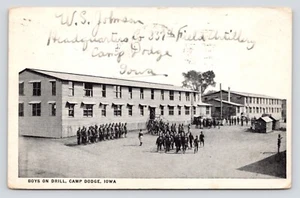 W. S. Johnson
Headquarters 337th Field Artillery
Camp Dodge
Iowa
BOYS ON DRILL, CAMP DODGE, IOWA